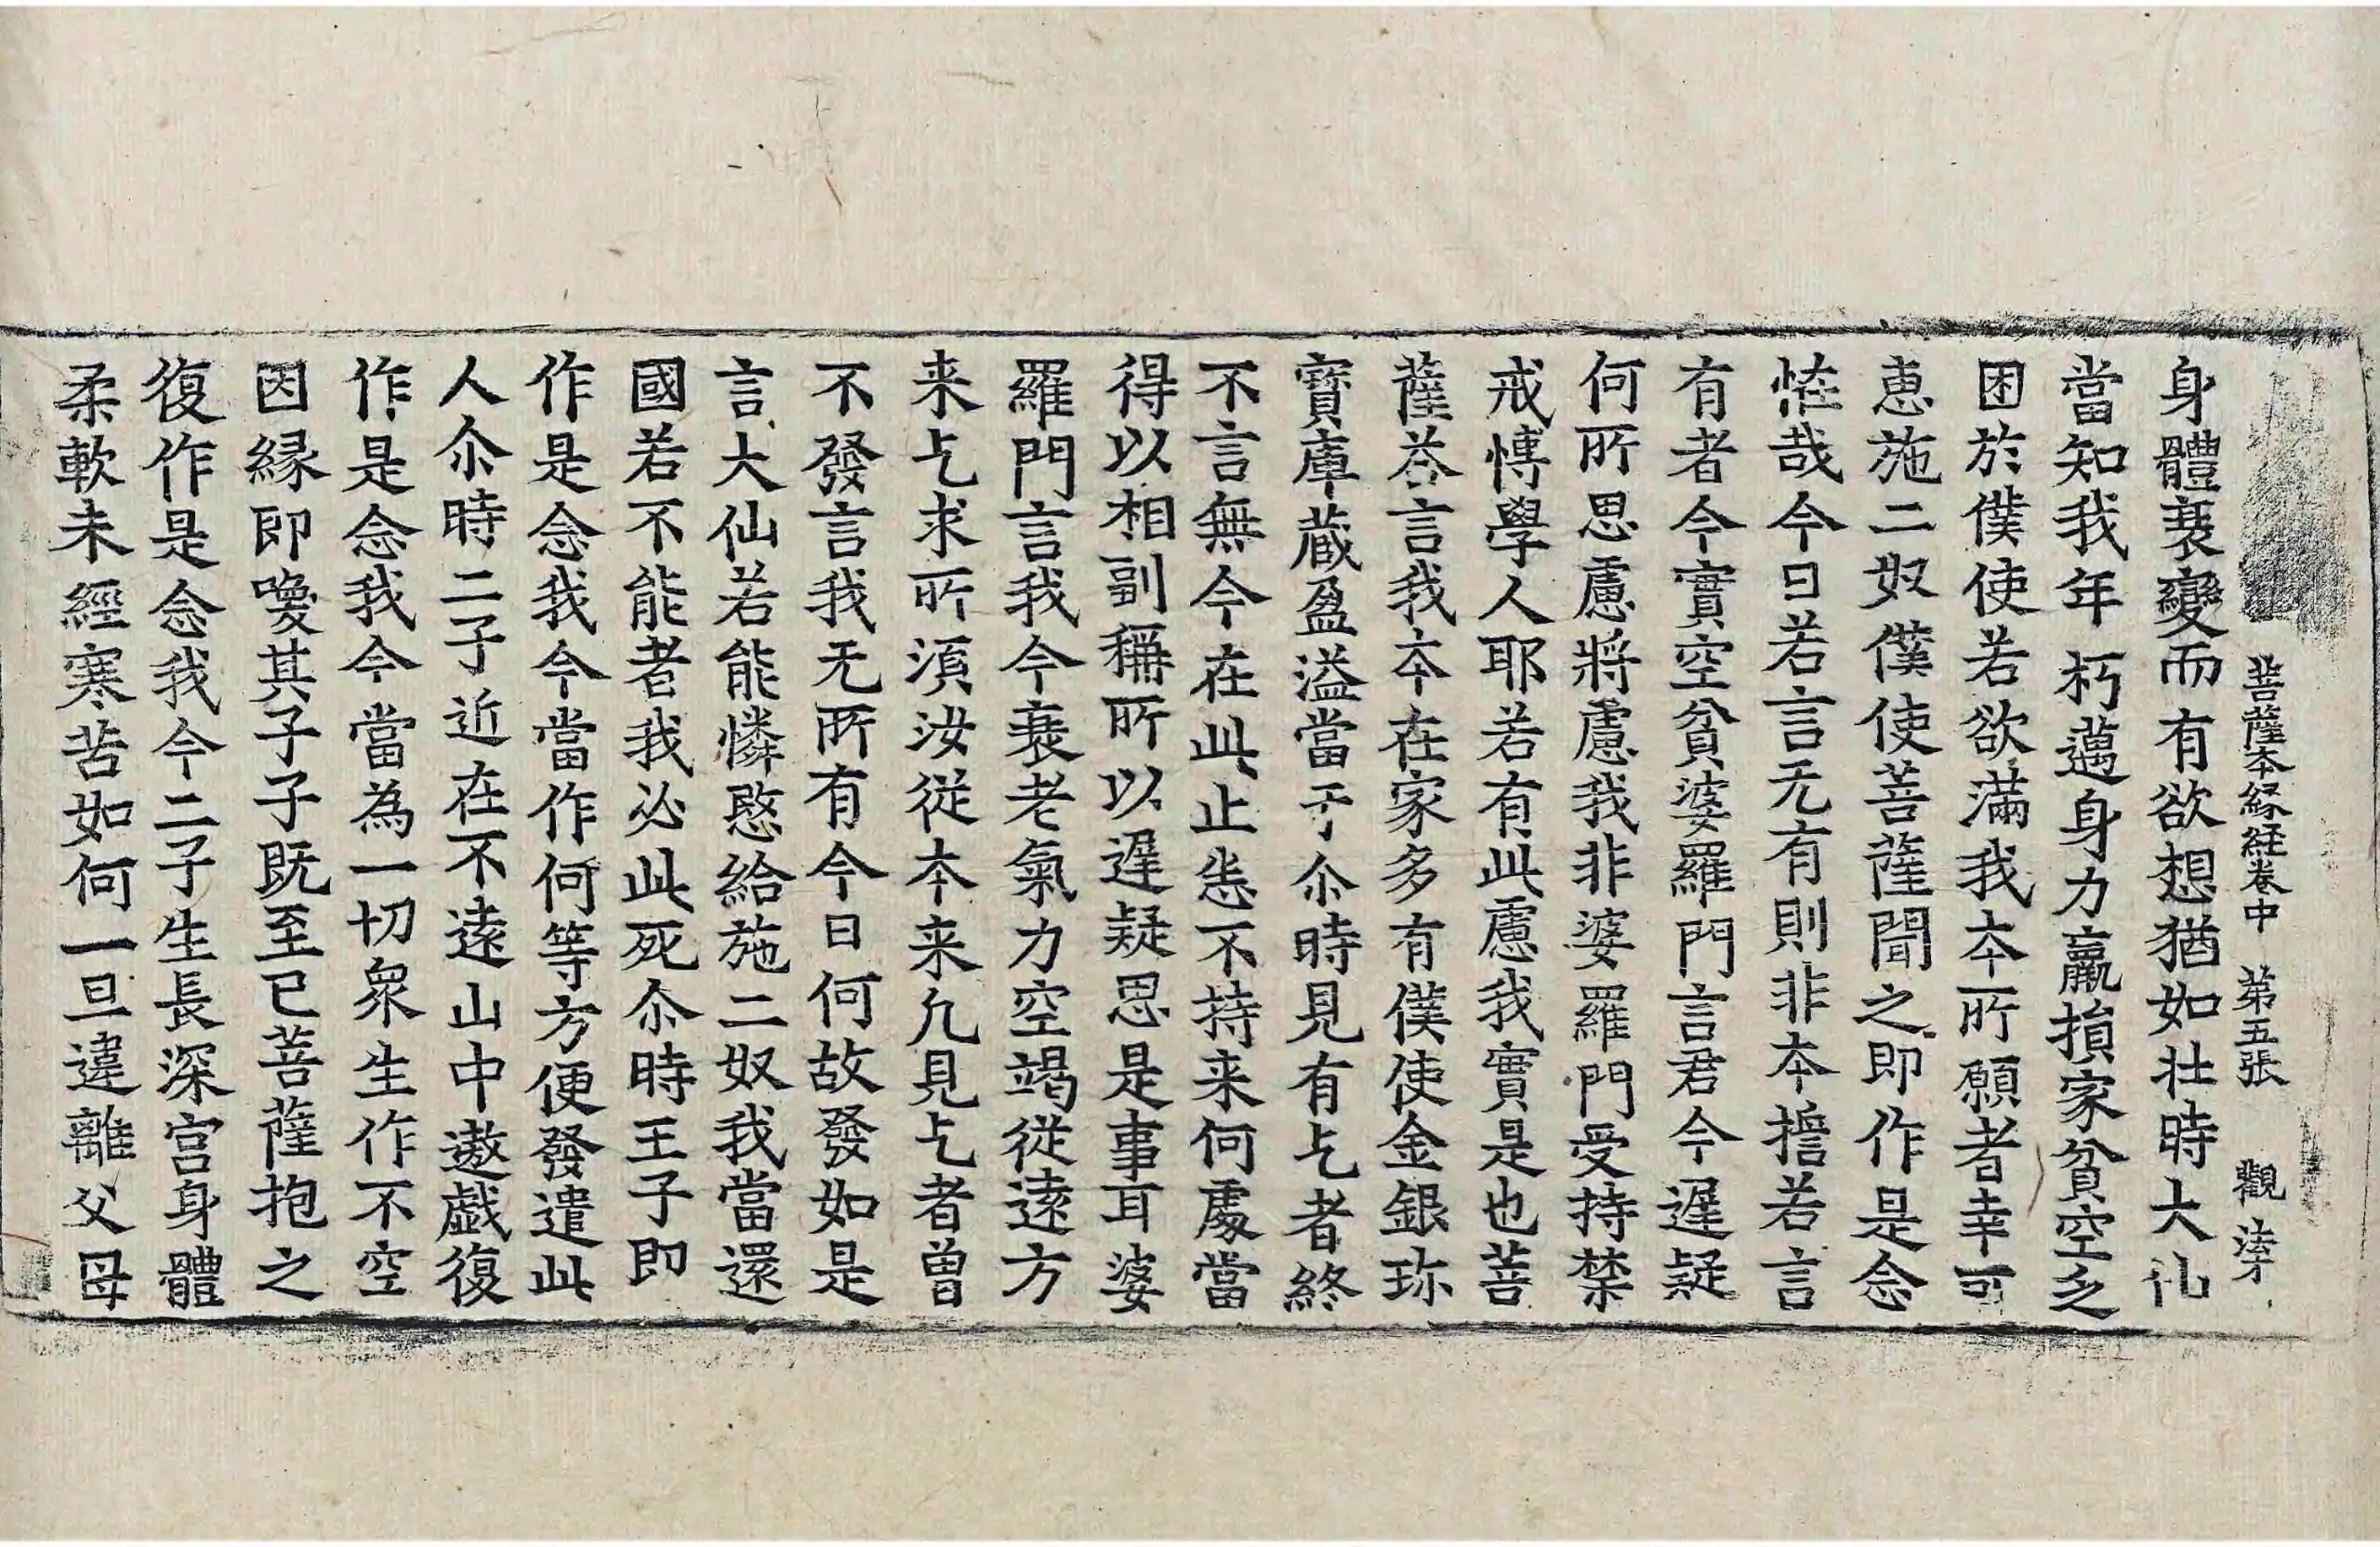 菩薩本緣經卷中　第五張　觀
身體衰變而有欲想猶如壯時大仙
當知我年朽邁身力羸損家貧空乏
困於僕使若欲滿我本所願者幸可
恵施二奴僕使菩薩聞之即作是念
恠哉今日若言无有則非本擔若言
有者今實空貧婆羅門言君今遲疑
何所思慮將慮我非婆羅門受持禁
戒愽學人耶若有此慮我實是也菩
薩荅言我本在家多有僕使金銀珎
寶庫蔵盈溢當予尒時見有乞者終
不言無今在此止恙不持来何處當
得以相副稱所以遲疑思是事耳婆
羅門言我今衰老氣力空竭從逺方
来乞求所湏汝從本来凢見乞者曽
不發言我无所有今日何故發如是
言大仙若能憐愍給施二奴我當還
國若不能者我必此死尒時王子即
作是念我今當作何等方便發遣此
人尒時二子近在不逺山中遨戯復
作是念我今當為一切衆生作不空
因縁即喚其子子既至已菩薩抱之
復作是念我今二子生長深宫身體
柔軟未經寒苦如何一旦違離父母